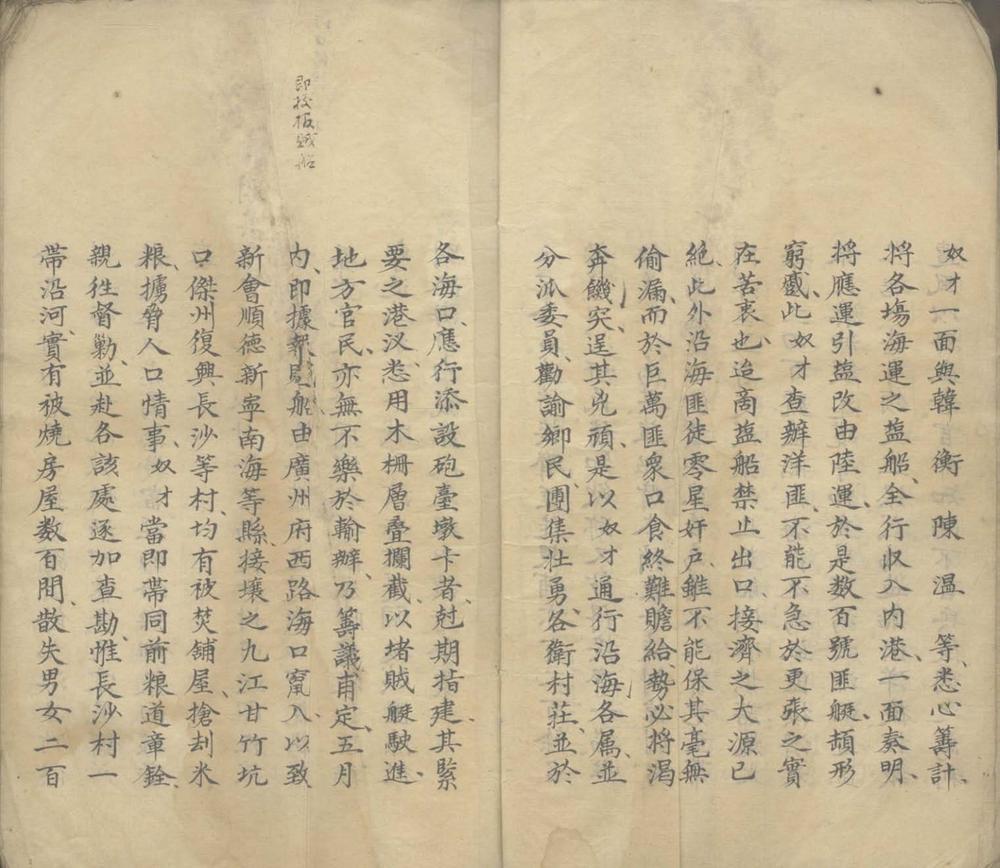 奴才一面與韓　衡陳　溫　等、悉心籌計、
將各場海運之塩船、全行収入内港、一面奏明、
將應運引塩改由陸運、於是数百號匪艇、頡形
窮蹙、此奴才查辦洋匪、不能不急於更張之實
在苦衷也、迨商塩船禁止出口、接濟之大源已
絶、此外沿海匪徒、零星奸戸、雖不能保其毫無
偷漏、而於巨萬匪衆、口食終難贍給、勢必將渴
奔饑突、逞其兇頑、是以奴才通行沿海各属、並
分派委員、勸諭鄉民、團集壯勇、各衛村莊、並於
各海口、應行添設砲臺墩卡者、尅期搘建、其緊
要之港汊、悉用木柵層疊攔截、以堵賊艇駛進、
地方官民、亦無不樂於輸辦、乃籌議甫定、五月
内、即據報匪船由廣州府西路海口竄入、以致
新會順德新寧南海等縣、接壤之九江甘竹坑
口傑州復興長沙等村、均有被焚舖屋、搶刦米
粮、擄脅人口情事、奴才當即帶同前粮道章銓、
親徃督勦、並赴各該處逐加查勘、惟長沙村一
帶沿河、實有被燒房屋数百間、散失男女二百
即板賊船